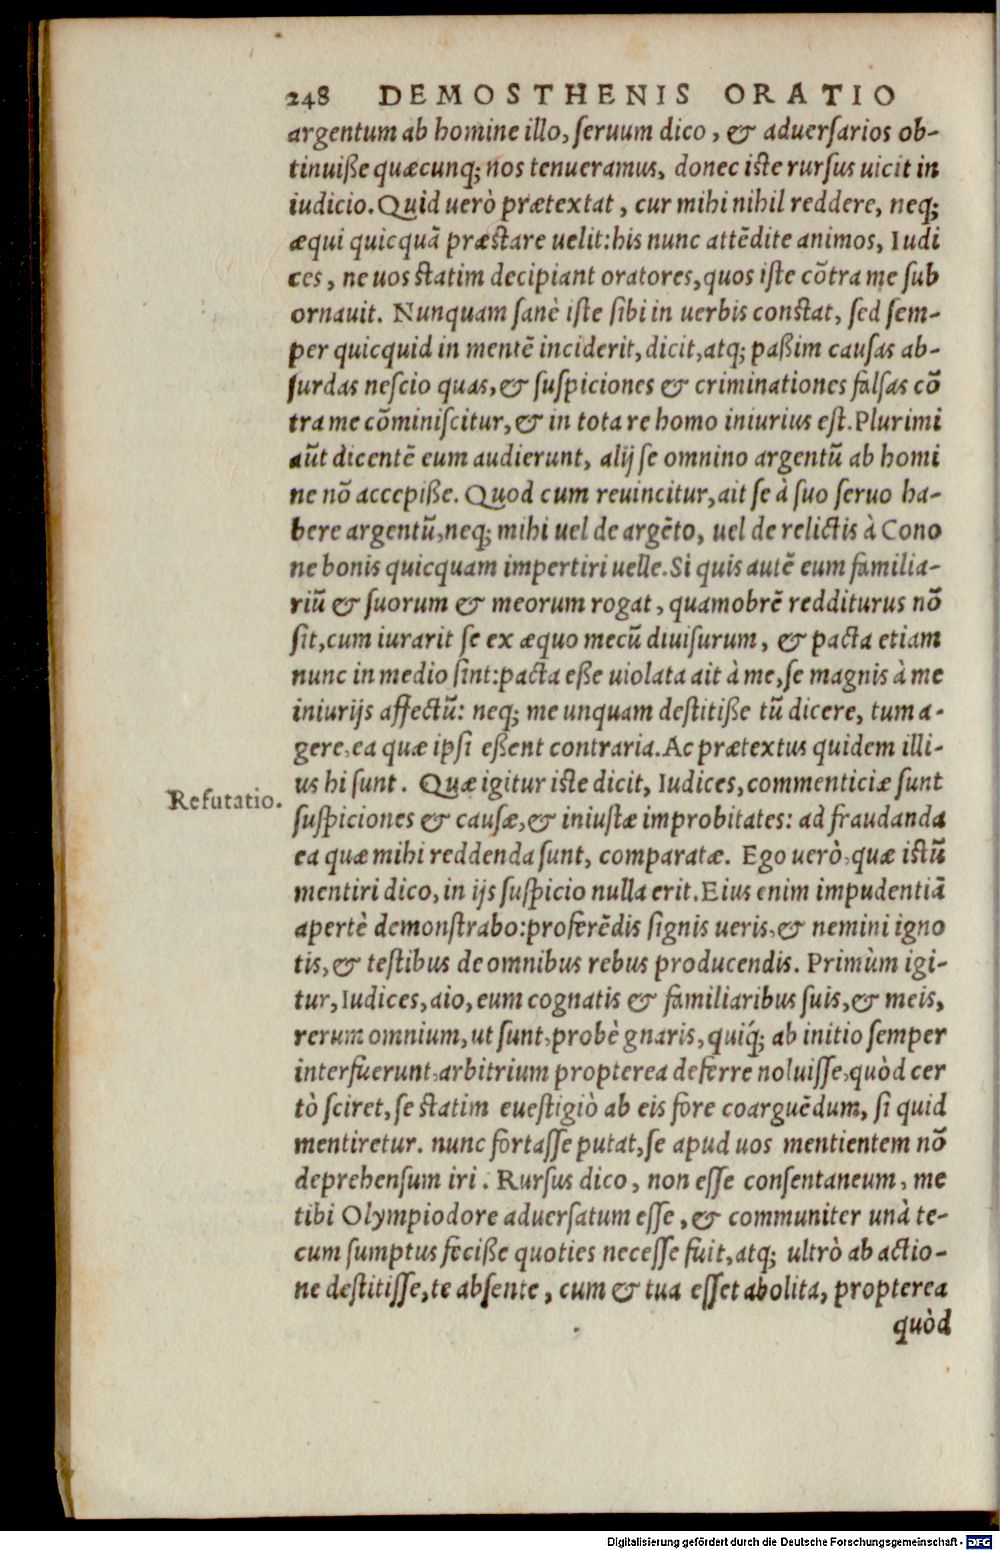 248 DEMOSTHENIS ORATIO
argentum ab homine illo, seruum dico, & aduersarios ob-
tinuiße quæcunq; nos tenueramus, donec iste rursus uicit in
iudicio. Quid uerò prætextat, cur mihi nihil reddere, neq;
æqui quicquā præstare uelit: his nunc attēdite animos, Iudi
ces, ne uos statim decipiant oratores, quos iste cōtra me sub
ornauit. Nunquam sanè iste sibi in uerbis constat, sed sem-
per quicquid in mentē inciderit, dicit, atq; paßim causas ab-
surdas nescio quas, & suspiciones & criminationes falsas cō
tra me cōminiscitur, & in tota re homo iniurius est. Plurimi
aūt dicentē eum audierunt, alij se omnino argentū ab homi
ne nō accepiße. Quod cum reuincitur, ait se à suo seruo ha-
bere argentū, neq; mihi uel de argēto, uel de relictis à Cono
ne bonis quicquam impertiri uelle. Si quis autē eum familia-
riū & suorum & meorum rogat, quamobrē redditurus nō
sit, cum iurarit se ex æquo mecū diuisurum, & pacta etiam
nunc in medio sint: pacta eße uiolata ait à me, se magnis à me
iniurijs affectū: neq; me unquam destitiße tū dicere, tum a-
gere, ea quæ ipsi eßent contraria. Ac prætextus quidem illi-
us hi sunt. Quæ igitur iste dicit, Iudices, commenticiæ sunt
Refutatio.
suspiciones & causæ, & iniustæ improbitates: ad fraudanda
ea quæ mihi reddenda sunt, comparatæ. Ego uerò, quæ istū
mentiri dico, in ijs suspicio nulla erit. Eius enim impudentiā
apertè demonstrabo: proferēdis signis ueris, & nemini igno
tis, & testibus de omnibus rebus producendis. Primùm igi-
tur, Iudices, aio, eum cognatis & familiaribus suis, & meis,
rerum omnium, ut sunt, probè gnaris, quiq́; ab initio semper
interfuerunt, arbitrium propterea deferre noluisse, quòd cer
tò sciret, se statim euestigiò ab eis fore coarguēdum, si quid
mentiretur. nunc fortasse putat, se apud uos mentientem nō
deprehensum iri. Rursus dico, non esse consentaneum, me
tibi Olympiodore aduersatum esse, & communiter unà te-
cum sumptus feciße quoties necesse fuit, atq; ultrò ab actio-
ne destitisse, te absente, cum & tua esset abolita, propterea
quòd
Digitalisierung gefördert durch die Deutsche Forschungsgemeinschaft - DFG